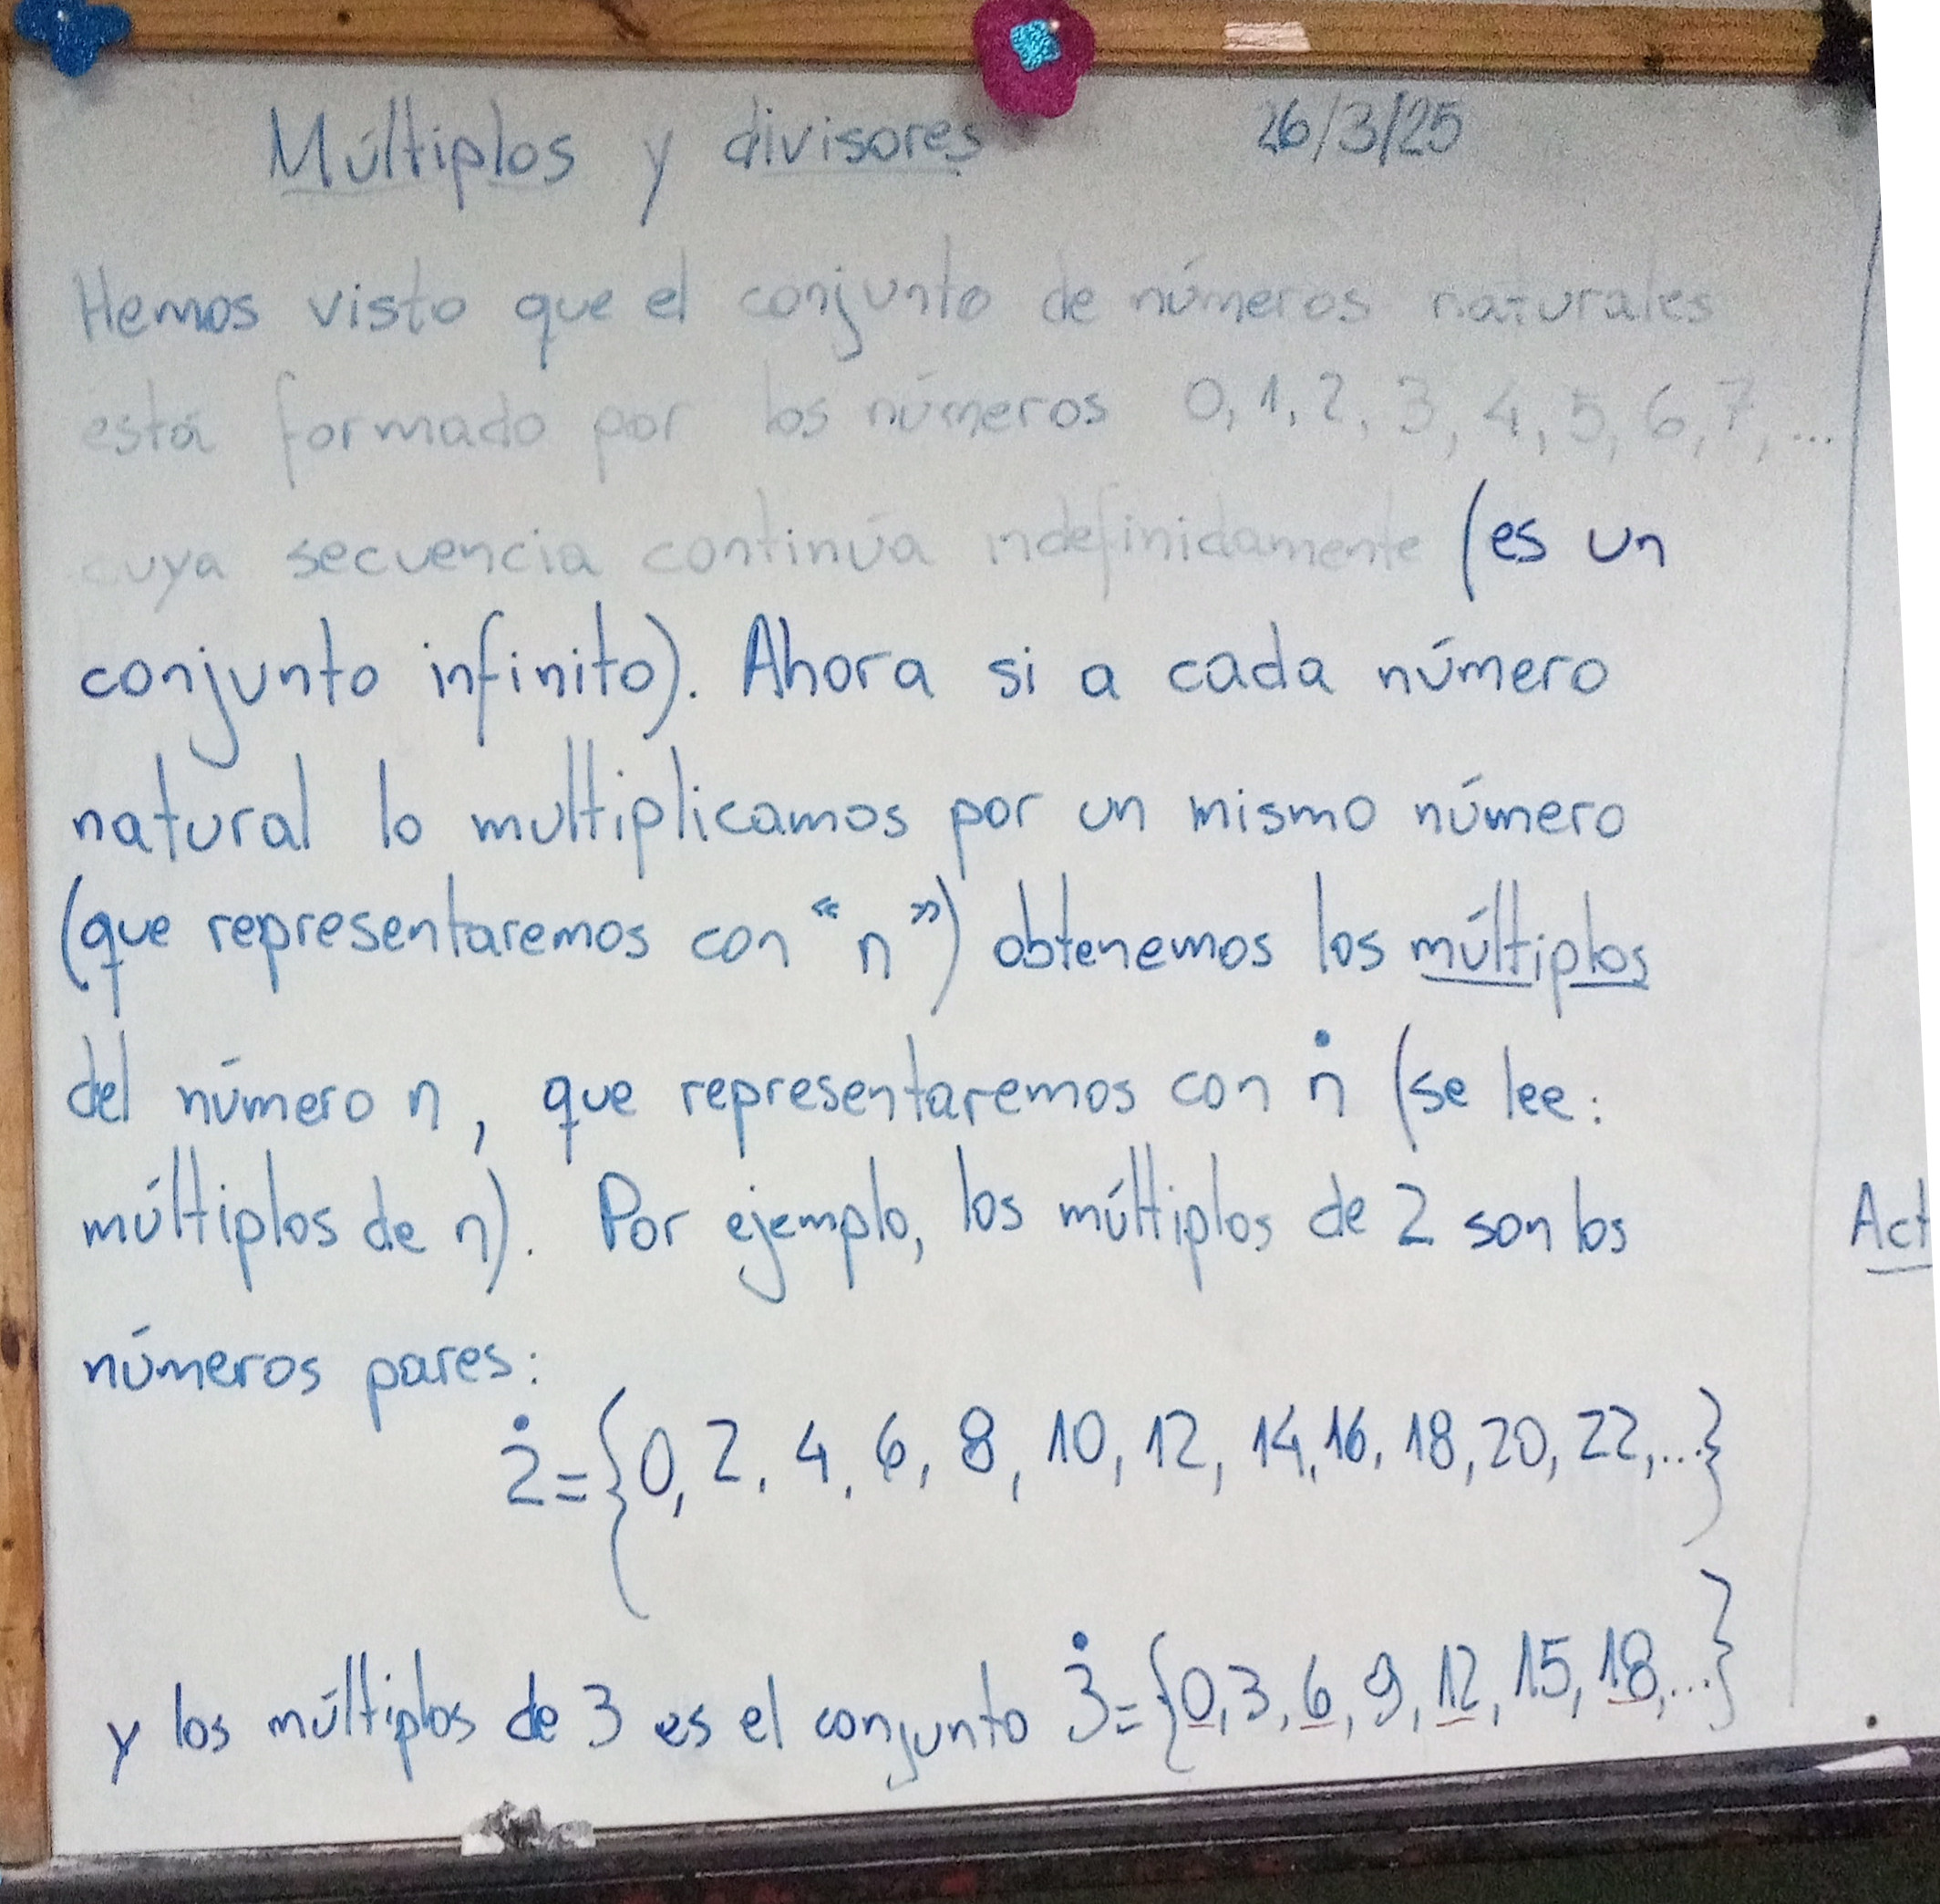 Múltiplos y divisores 26/3/25
Hemos visto que el conjunto de números naturales
está formado por los números 0, 1, 2, 3, 4, 5, 6, 7, ...
cuya secuencia continúa indefinidamente (es un
conjunto infinito). Ahora si a cada número
natural lo multiplicamos por un mismo número
(que representaremos con “n”) obtenemos los múltiplos
del número n, que representaremos con ṅ (se lee:
múltiplos de n). Por ejemplo, los múltiplos de 2 son los
números pares:
2̇ = {0, 2, 4, 6, 8, 10, 12, 14, 16, 18, 20, 22, ...}
y los múltiplos de 3 es el conjunto 3̇ = {0, 3, 6, 9, 12, 15, 18, ...}
Act